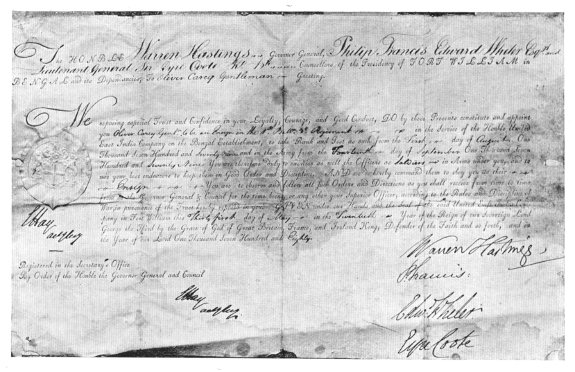 The HONBLE Warren Hastings Governor General, Philip Francis Edward Wheler Esqrs and
Lieutenant General Sir Eyre Coote Kt Counsellors of the Presidency of FORT WILLIAM in
BENGAL and the Dependancies To Oliver Carey Gentleman Greeting.
We reposing especial Trust and Confidence in your Loyalty, Courage, and Good Conduct, DO by these Presents constitute and appoint
you Oliver Carey Gent. to be an Ensign in the Regiment in the Service of the Honble United
East India Company on the Bengal Establishment, to take Rank and Post as such from the First day of August One
Thousand Seven Hundred and Seventy and in the Army from the day of September One Thousand Seven
Hundred and Seventy You are therefore Duly to exercise as well the Officers as Soldiers in Arms under you, and to
use your best endeavors to keep them in Good Order and Discipline. AND we do hereby command them to obey you as their
Ensign You are to observe and follow all such Orders and Directions as you shall receive from time to time
from the Governor General & Council for the time being, or any other your Superior Officer, according to the Rules and Discipline of
War in pursuance of the Trust GIVEN under our Hands and the Seal of the United East India Company
in Fort William this Thirty first day of May in the Twentieth Year of the Reign of our Sovereign Lord
George the Third by the Grace of God of Great Britain, France, and Ireland King, Defender of the Faith and so forth, and in
the Year of our Lord One Thousand Seven Hundred and Eighty.
Hay
Warren Hastings
Registered in the Secretary's Office
By Order of the Honble the Governor General and Council
P Francis
Hay
Edwd Wheler
Eyre Coote